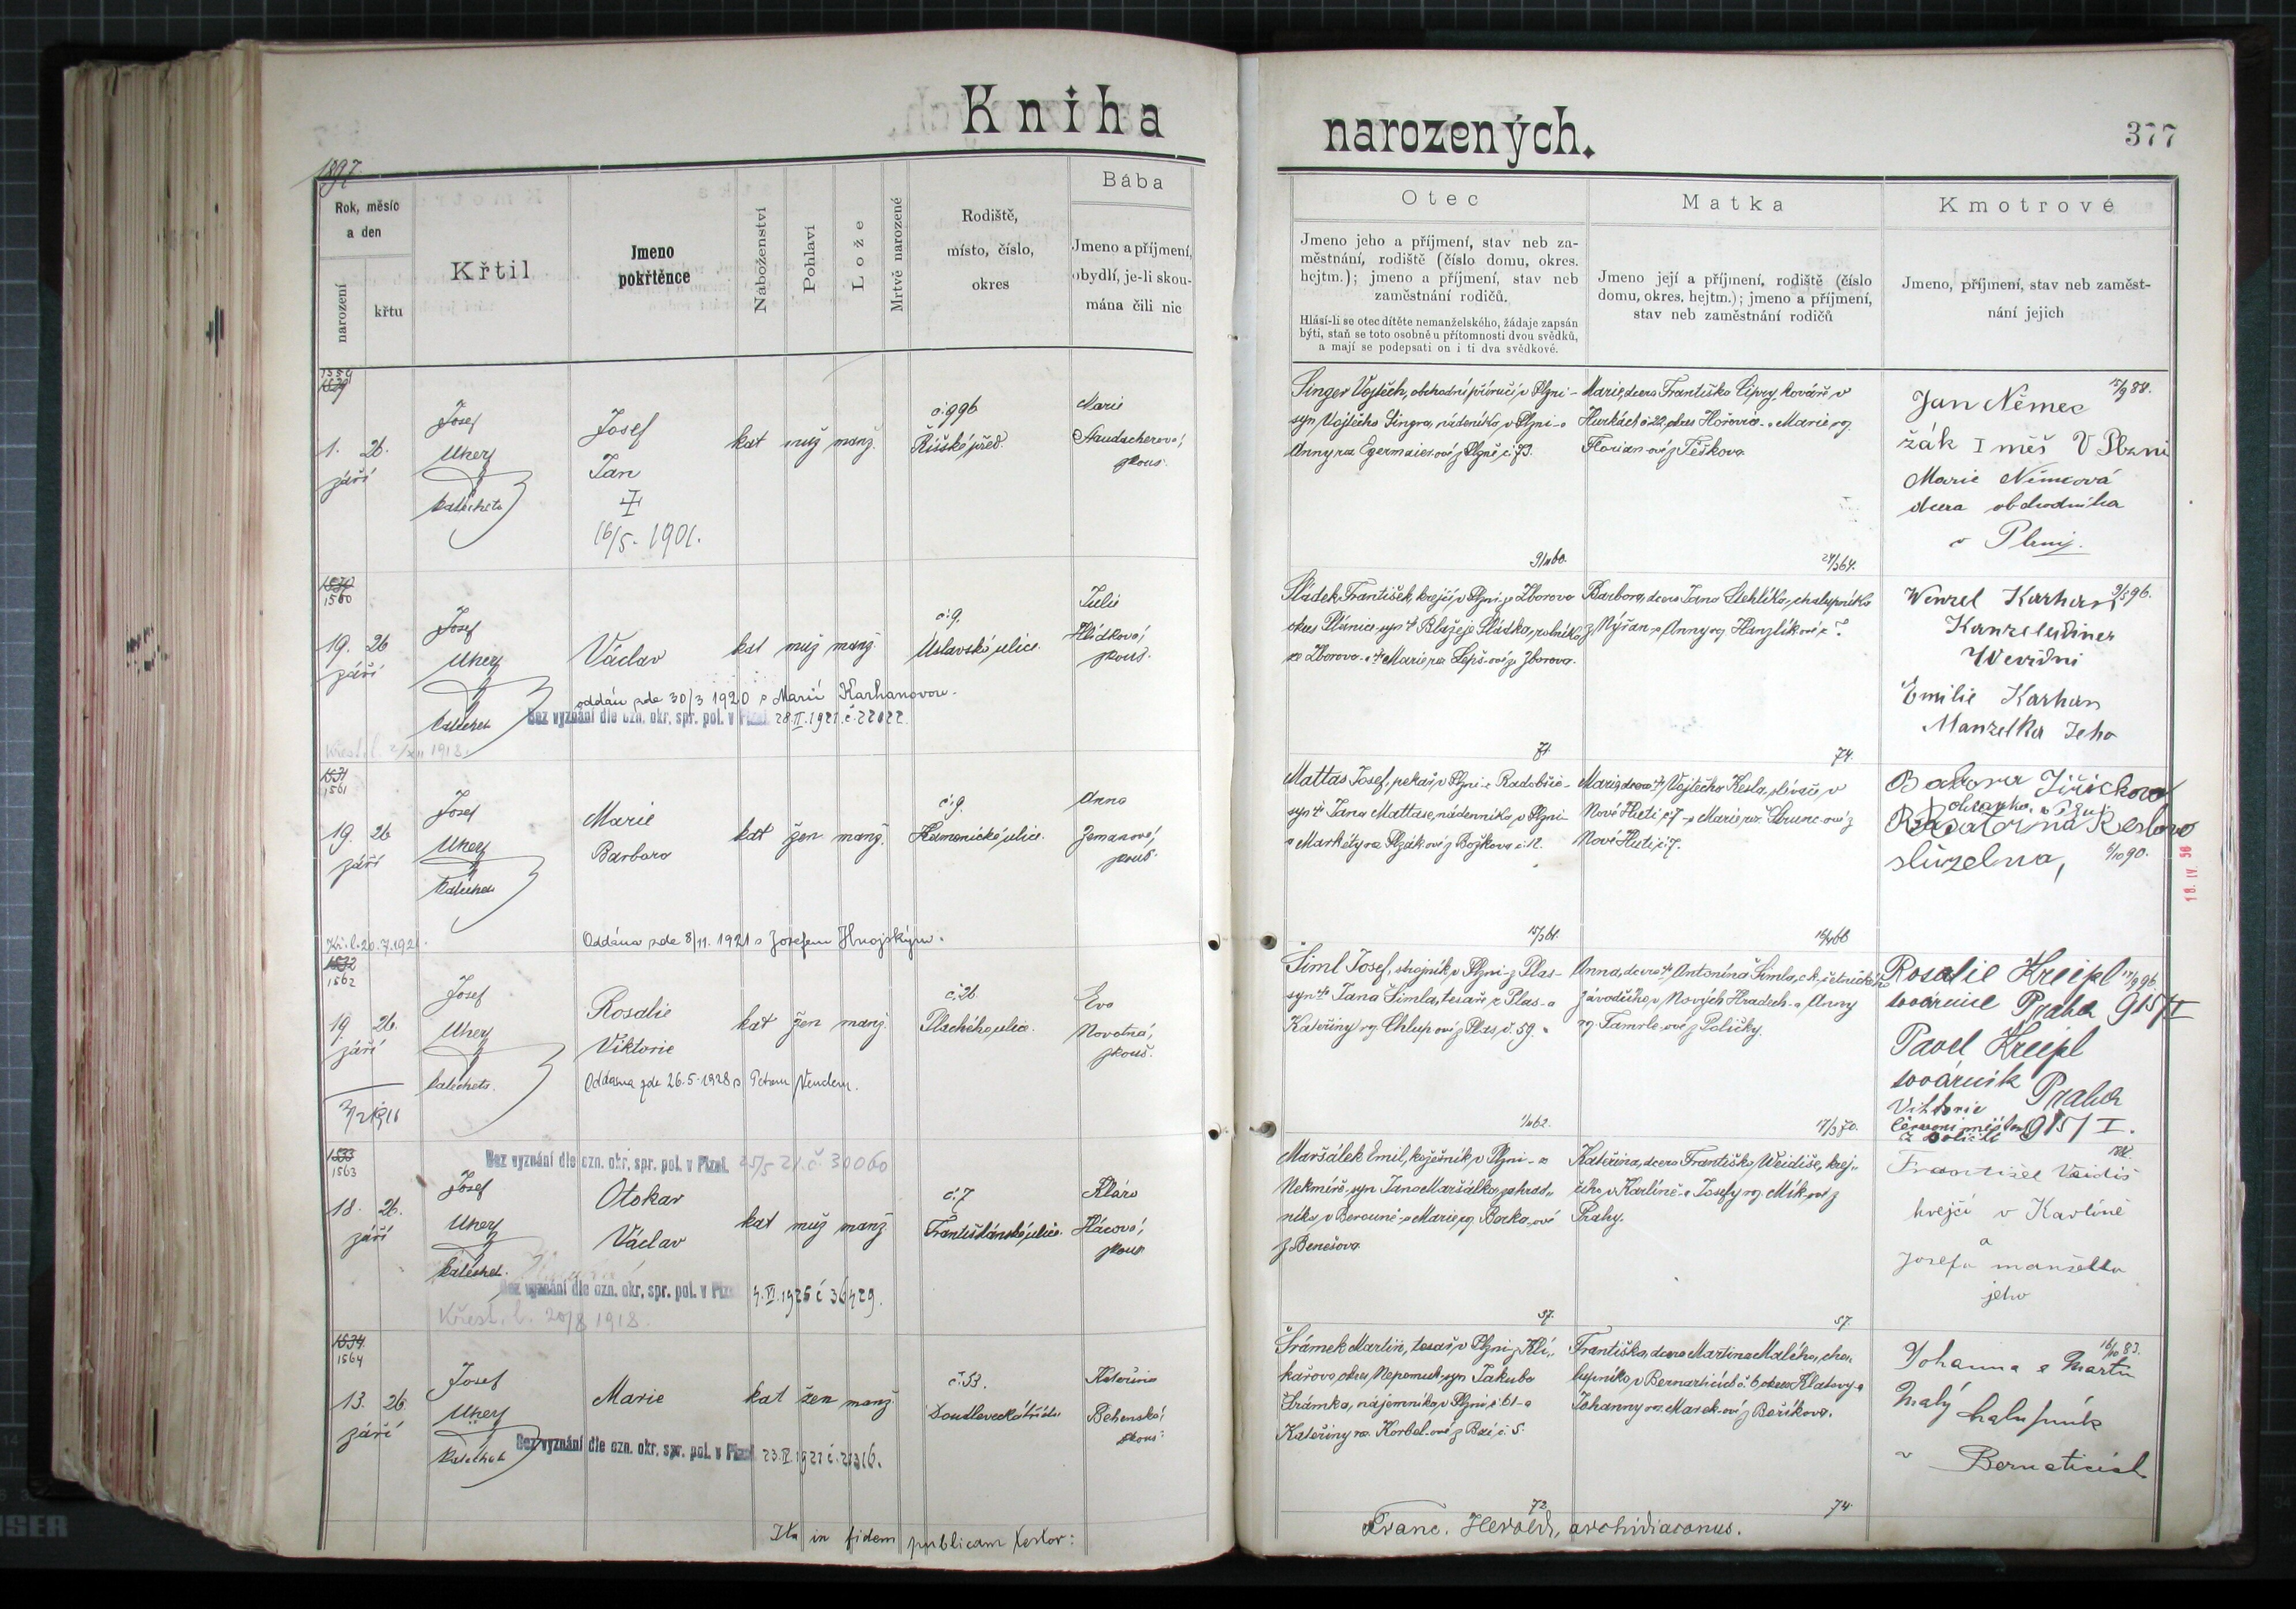 Kniha
1897.
Rok, měsíc
a den
narození
křtu
Křtil
Jmeno
pokřtěnce
Náboženství
Pohlaví
Lože
Mrtvě narozené
Rodiště,
místo, číslo,
okres
Bába
Jmeno a příjmení,
obydlí, je-li skou-
mána čili nic
1559
1. 26.
září
Josef
Uherý
katecheta
Josef
Jan
16/5. 1901.
kat muž manž.
č. 996
Říšské před.
Marie
zkouš.
1530
1560
19. 26
září
Josef
Uherý
katechet
Václav
kat muž manž.
č. 9.
Úslavská ulice.
Julie
Hlídková,
zkouš.
oddán zde 30/3 1920 s Marií Karhanovou.
Bez vyznání dle ozn. okr. spr. pol. v Plzni 28.II.1921.č.22022.
Křest. l. 2/XII 1918.
1531
1561
19. 26
září
Josef
Uherý
katechet
Marie
Barbora
kat žen manž.
č. 9.
Hamanická ulice.
Anna
Zemanová,
zkouš.
Kř. l. 20.7.1921.
Oddána zde 8/11. 1921 s Josefem Hnojským.
1532
1562
19. 26.
září
Josef
Uherý
katecheta.
Rosalie
Viktorie
kat žen manž.
č. 26.
Plachého ulice.
Eva
Novotná,
zkouš.
Oddána zde 26.5.1928 s Petrem
1533
1563
Bez vyznání dle ozn. okr. spr. pol. v Plzni. 25/5 21. č. 30060
18. 26.
září
Josef
Uherý
katechet.
Otokar
Václav
kat muž manž
č. 7
Františkánská ulice.
Klára
Hácová,
zkouš
Bez vyznání dle ozn. okr. spr. pol. v Plzni 4.VI.1926 č 36429.
Křest. l. 20/8 1918.
1534.
1564
13. 26.
září
Josef
Uherý
katechet
Marie
kat žen manž.
č. 53.
Doudlevecká třída
Kateřina
Běhenská,
zkouš.
Bez vyznání dle ozn. okr. spr. pol. v Plzni 23.II.1921 č. 21316.
Ita in fidem publicam testor:
narozených.
377
Otec
Jmeno jeho a příjmení, stav neb za-
městnání, rodiště (číslo domu, okres.
hejtm.); jmeno a příjmení, stav neb
zaměstnání rodičů.
Hlásí-li se otec dítěte nemanželského, žádaje zapsán
býti, staň se toto osobně u přítomnosti dvou svědků,
a mají se podepsati on i ti dva svědkové.
Matka
Jmeno její a příjmení, rodiště (číslo
domu, okres. hejtm.); jmeno a příjmení,
stav neb zaměstnání rodičů
Kmotrové
Jmeno, příjmení, stav neb zaměst-
nání jejich
Singer Vojtěch, obchodní příručí v Plzni -
syn Vojtěcha Singra, nádeníka v Plzni - a
Anny roz. Egermaier-ové z Plzně č. 73.
Marie, dcera Františka Cipry, kováře v
Hurkách č. 22, okres Hořovice - a Marie roz.
Florian-ové z Těškova
15/9 88.
Jan Němec
žák I měš V Plzni
Marie Němcová
dcera obchodníka
v Plzni.
Sládek František, krejčí v Plzni - ze Zborova
okres Plánice - syn Blažeje Sládka, rolníka
ze Zborova - a Marie roz. Lepš-ové ze Zborova.
Barbora, dcera Jana Stehlíka, chalupníka
z Mýřan - a Anny roz. Hanzlík-ové z ?.
Wenzel Karhan
Kanzeleidiner
Emilie Karhan
Manzelka Jeho
71.
74.
Mattas Josef, pekař v Plzni - z Radobčic -
syn Jana Mattasa, nádenníka v Plzni -
a Markéty roz. Plzák-ové z Božkova č. 12.
Marie, dcera Vojtěcha Kesla, slévače v
Nové Huti č. 7 - a Marie roz. Šrunc-ové z
Nové Huti č. 7.
Jiřičkova
Keslova
služebna,
6/10 90.
18. IV. 36
Šiml Josef, strojník v Plzni - z Plas -
syn Jana Šimla, tesaře z Plas - a
Kateřiny roz. Chlup-ové z Plas č. 59.
Anna, dcera Antonína Šimla, c.k. četnického
závodčího v Nových Hradech - a Anny
roz. Famrle-ové z Poličky.
Rosalie Kreipl
továrnice Praha 915/I
Pavel Kreipl
továrník Praha
915/I.
Viktorie
Maršálek Emil, kožešník v Plzni - z
Nekmíře - syn Jana Maršálka, zahrad-
níka v Berouně - a Marie roz. Borka-ové
z Benešova.
Kateřina, dcera Františka Weidiše, krej-
čího v Karlíně - a Josefy roz. Mík-ové z
Prahy.
František Vaidiš
krejčí v Karlíně
a
Josefa manželka
jeho
57.
57.
Šrámek Martin, tesař v Plzni - z Kli-
kařova, okres Nepomuk, syn Jakuba
Šrámka, nájemníka v Plzni č. 61 - a
Kateřiny roz. Korbel-ové z č. 5.
Františka, dcera Martina Malého, cha-
lupníka v Bernarticích č. 6, okres Klatovy - a
Johanny roz. Marek-ové z Bezěkova.
16/10 83.
Johanna a Martin
Malý halupník
v Bernaticích
72.
74.
Franc. Herold, archidiaconus.